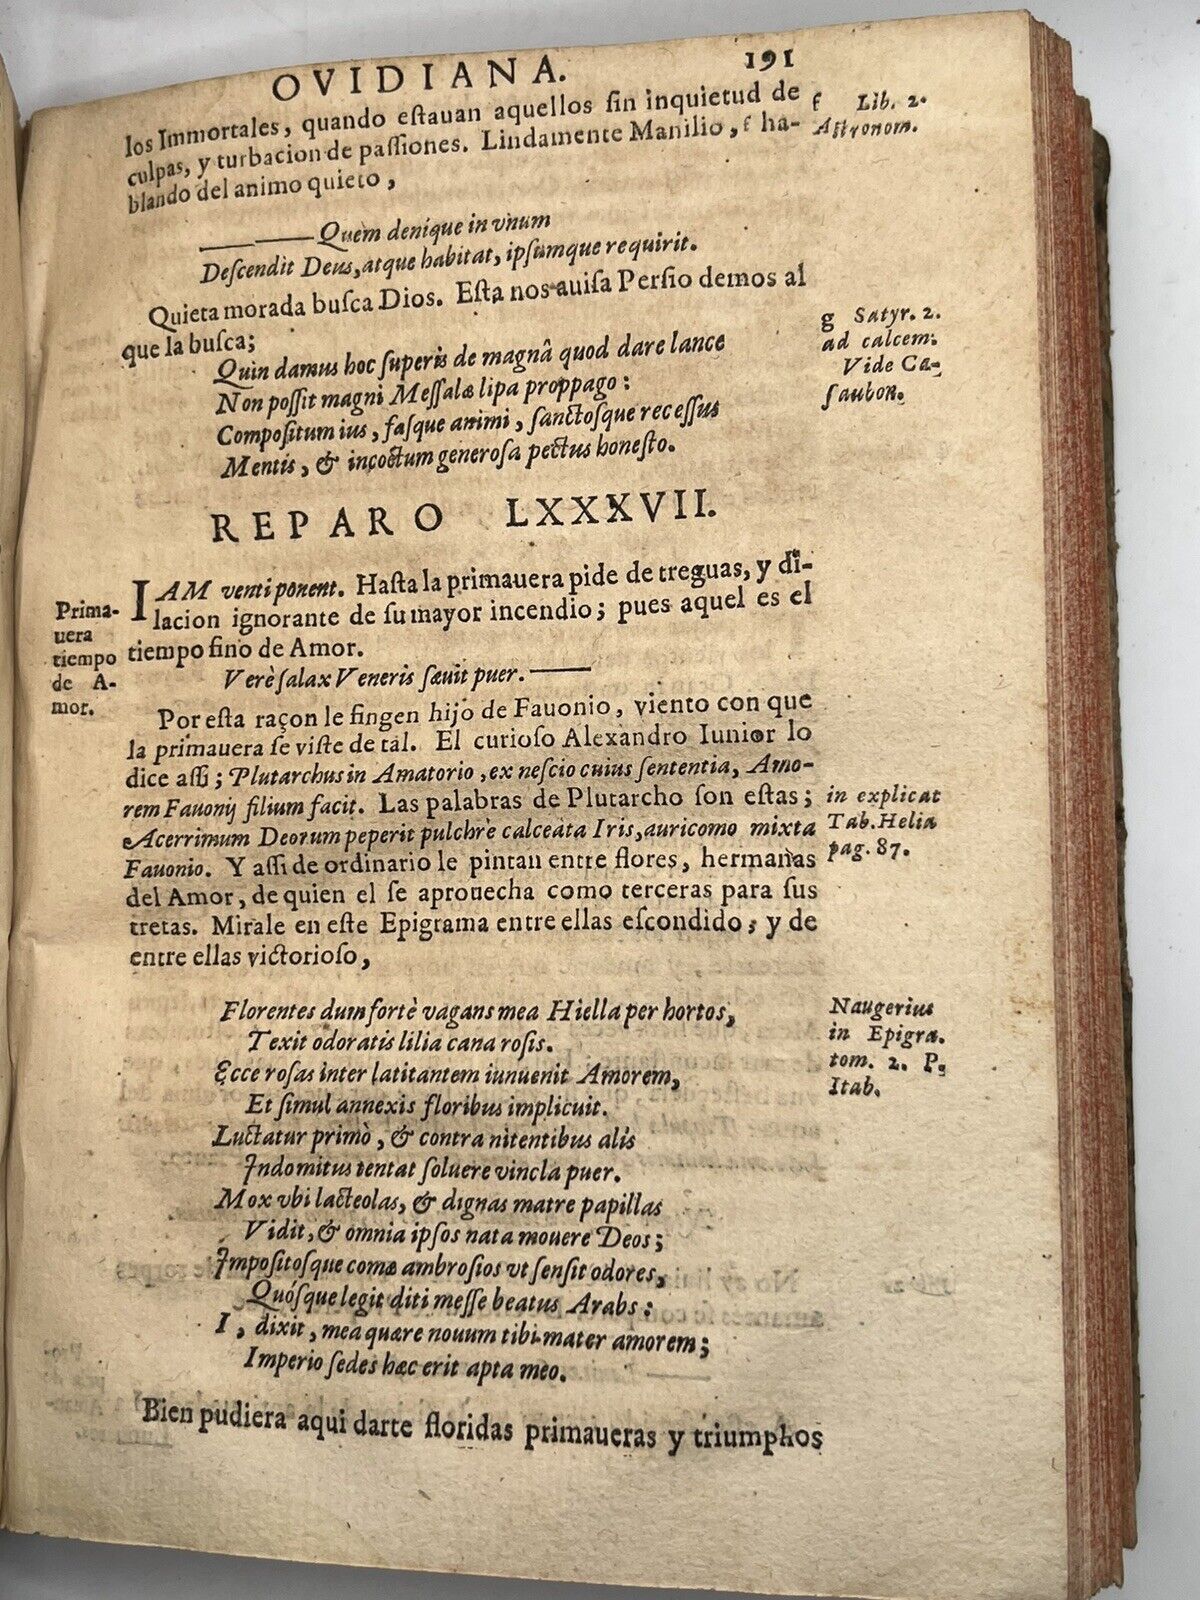 OVIDIANA. 191
los Immortales, quando eſtauan aquellos ſin inquietud de
culpas, y turbacion de paſsiones. Lindamente Manilio, f ha-
blando del animo quieto,
f Lib. 2.
Aſtronom.
Quem denique in vnum
Deſcendit Deus, atque habitat, ipſumque requirit.
Quieta morada buſca Dios. Eſta nos auiſa Perſio demos al
que la buſca;
g Satyr. 2.
ad calcem.
Vide Ca-
ſaubon.
Quin damus hoc ſuperis de magnâ quod dare lance
Non poſsit magni Meſſalæ lipa proppago:
Compoſitum ius, faſque animi, ſanctoſque receſſus
Mentis, & incoctum generoſa pectus honeſto.
REPARO LXXXVII.
Prima-
uera
tiempo
de A-
mor.
IAM venti ponent. Haſta la primauera pide de treguas, y di-
lacion ignorante de ſu mayor incendio; pues aquel es el
tiempo fino de Amor.
Verè ſalax Veneris ſæuit puer.
Por eſta raçon le fingen hijo de Fauonio, viento con que
la primauera ſe viſte de tal. El curioſo Alexandro Iunior lo
dice aſsi; Plutarchus in Amatorio, ex neſcio cuius ſententia, Amo-
rem Fauonij filium facit. Las palabras de Plutarcho ſon eſtas;
Acerrimum Deorum peperit pulchrè calceata Iris, auricomo mixta
Fauonio. Y aſsi de ordinario le pintan entre flores, hermanas
del Amor, de quien el ſe aprouecha como terceras para ſus
tretas. Mirale en eſte Epigrama entre ellas eſcondido, y de
entre ellas victorioſo,
in explicat
Tab. Helia
pag. 87.
Florentes dum fortè vagans mea Hiella per hortos,
Texit odoratis lilia cana roſis.
Ecce roſas inter latitantem iunuenit Amorem,
Et ſimul annexis floribus implicuit.
Luctatur primò, & contra nitentibus alis
Indomitus tentat ſoluere vincla puer.
Mox vbi lacteolas, & dignas matre papillas
Vidit, & omnia ipſos nata mouere Deos;
Impoſitoſque comæ ambroſios vt ſenſit odores,
Quóſque legit diti meſſe beatus Arabs:
I, dixit, mea quære nouum tibi mater amorem;
Imperio ſedes hæc erit apta meo.
Naugerius
in Epigra.
tom. 2. P.
Itab.
Bien pudiera aqui darte floridas primaueras y triumphos